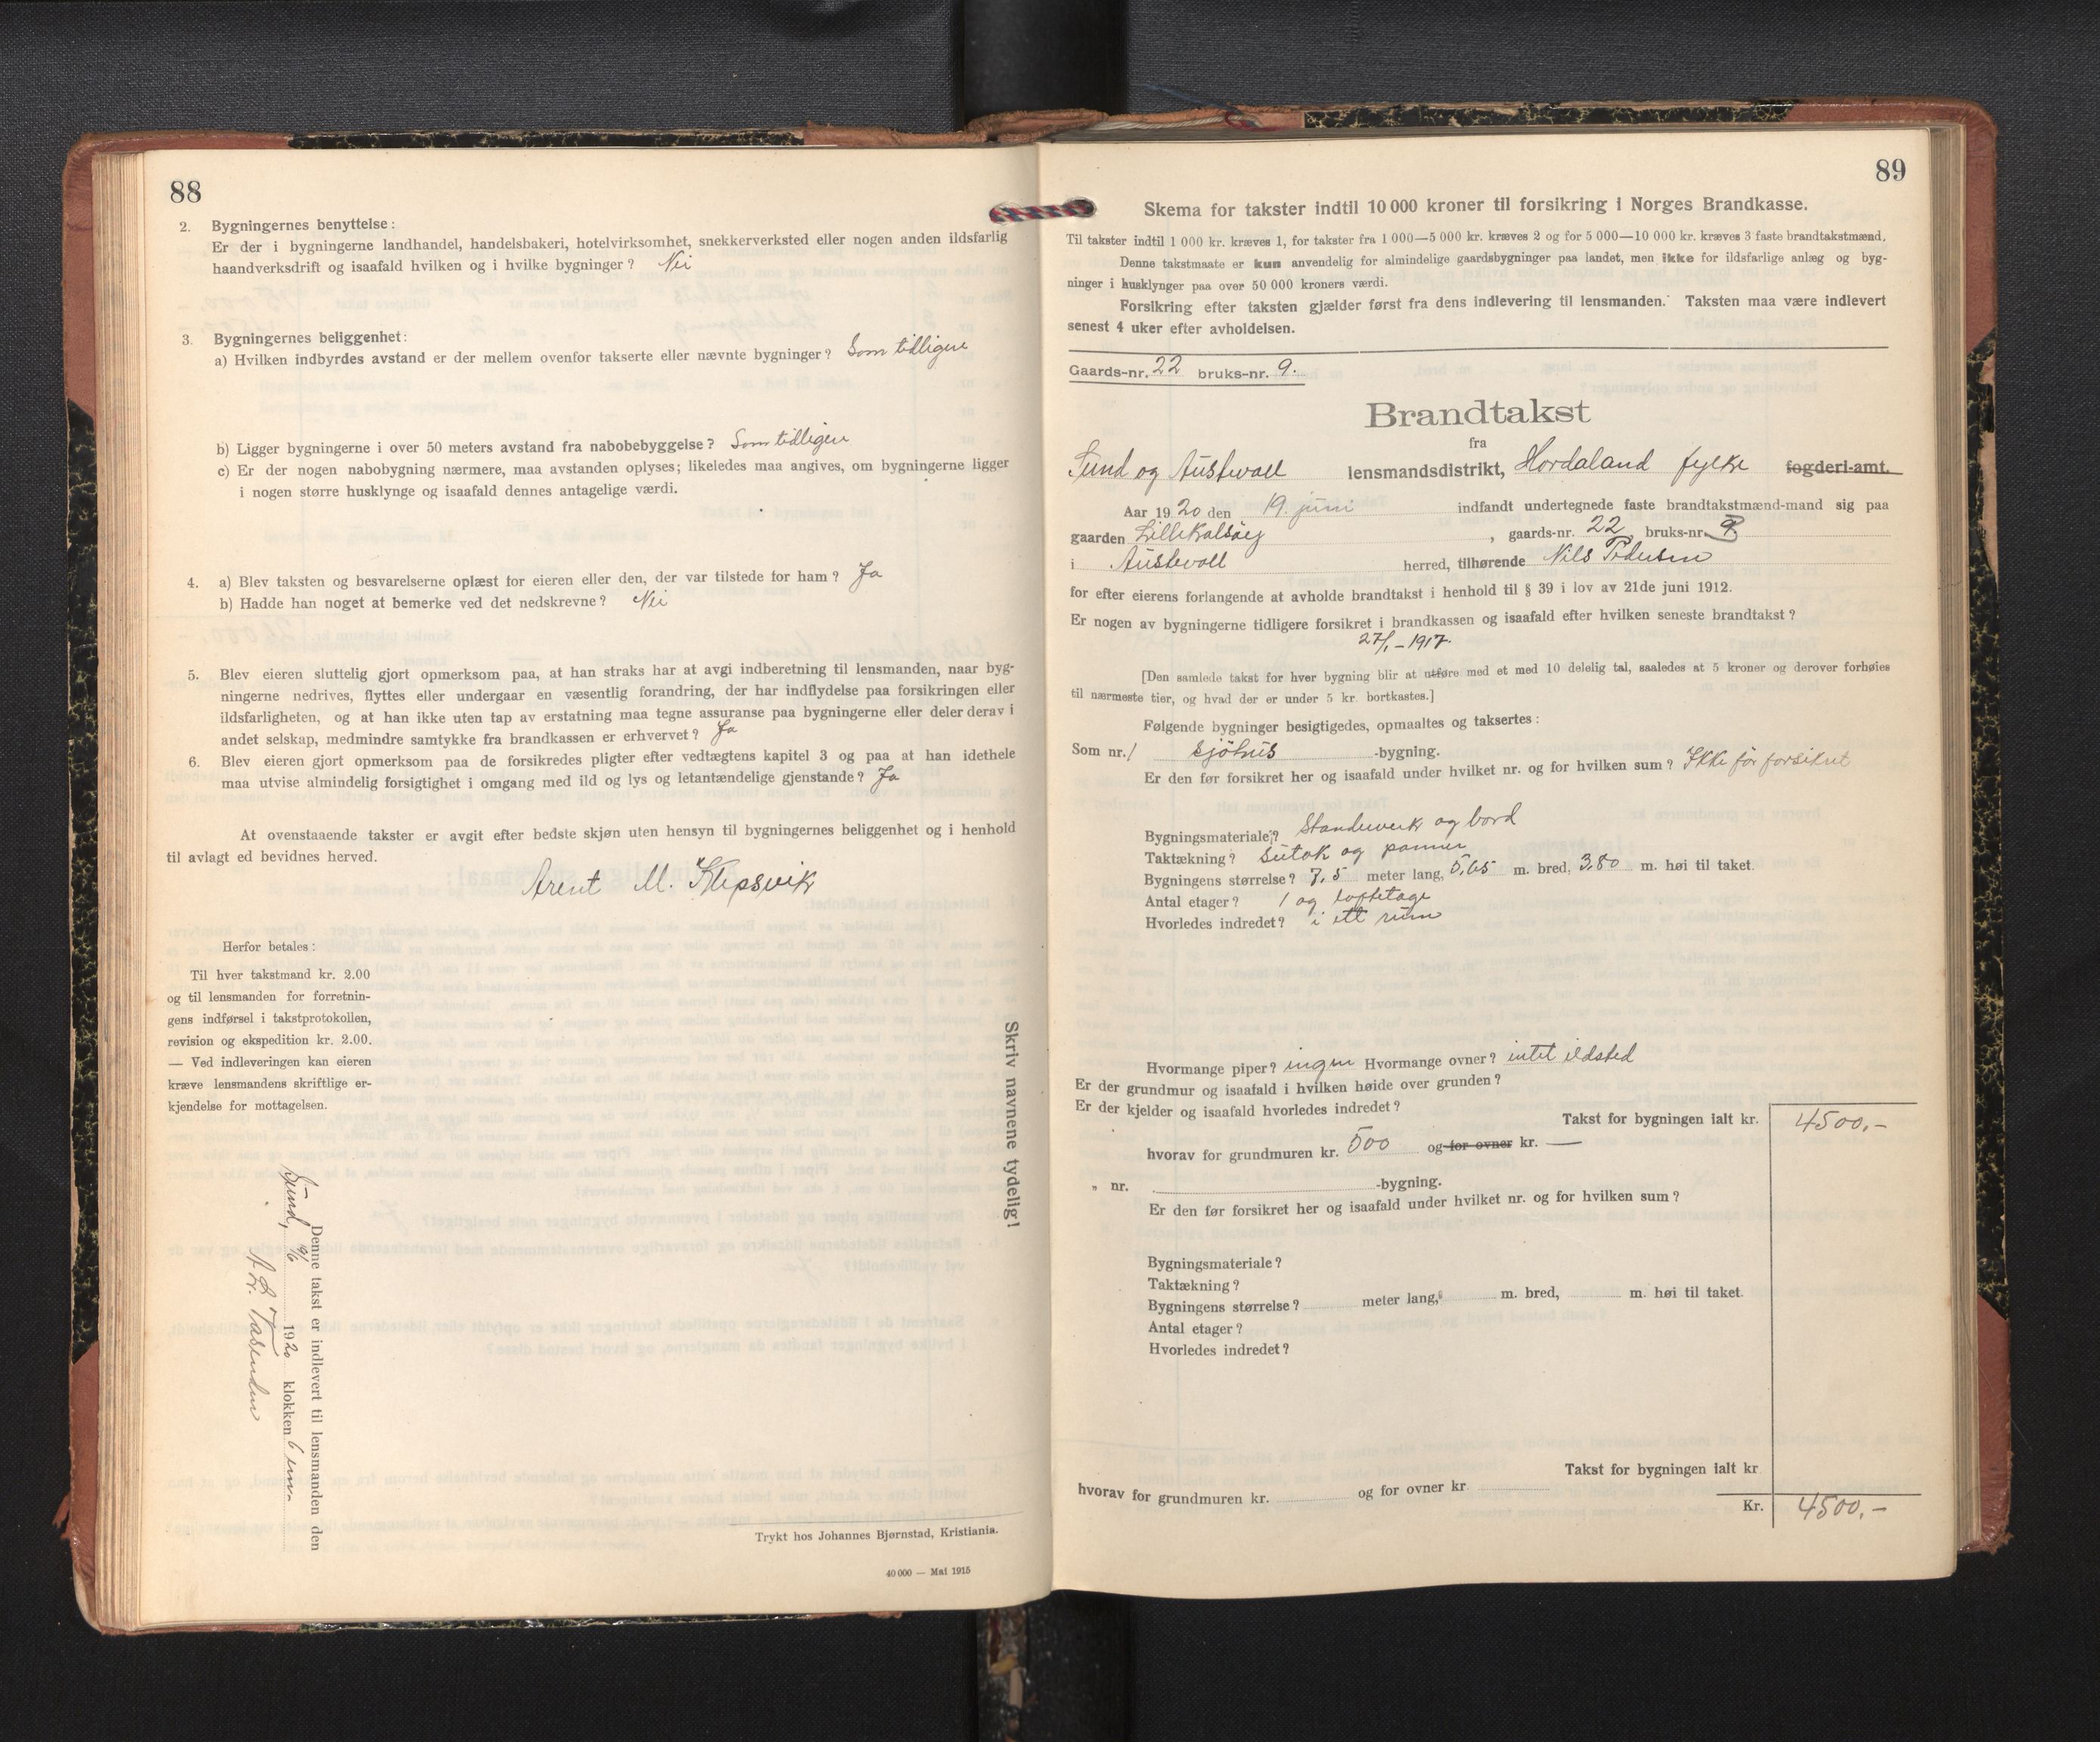 88
2. Bygningernes benyttelse:
Er der i bygningerne landhandel, handelsbakeri, hotelvirksomhet, snekkerverksted eller nogen anden ildsfarlig
haandverksdrift og isaafald hvilken og i hvilke bygninger? Nei
3. Bygningernes beliggenhet:
a) Hvilken indbyrdes avstand er der mellem ovenfor takserte eller nævnte bygninger? Som tidligere
b) Ligger bygningerne i over 50 meters avstand fra nabobebyggelse? Som tidligere
c) Er der nogen nabobygning nærmere, maa avstanden oplyses; likeledes maa angives, om bygningerne ligger
i nogen større husklynge og isaafald dennes antagelige værdi.
4. a) Blev taksten og besvarelserne oplæst for eieren eller den, der var tilstede for ham? Ja
b) Hadde han noget at bemerke ved det nedskrevne? Nei
5. Blev eieren sluttelig gjort opmerksom paa, at han straks har at avgi indberetning til lensmanden, naar byg-
ningerne nedrives, flyttes eller undergaar en væsentlig forandring, der har indflydelse paa forsikringen eller
ildsfarligheten, og at han ikke uten tap av erstatning maa tegne assuranse paa bygningerne eller deler derav i
andet selskap, medmindre samtykke fra brandkassen er erhvervet? Ja
6. Blev eieren gjort opmerksom paa de forsikredes pligter efter vedtægtens kapitel 3 og paa at han idethele
maa utvise almindelig forsigtighet i omgang med ild og lys og letantændelige gjenstande? Ja
At ovenstaaende takster er avgit efter bedste skjøn uten hensyn til bygningernes beliggenhet og i henhold
til avlagt ed bevidnes herved.
Arent M. Klepsvik
Herfor betales:
Til hver takstmand kr. 2.00
og til lensmanden for forretnin-
gens indførsel i takstprotokollen,
revision og ekspedition kr. 2.00.
— Ved indleveringen kan eieren
kræve lensmandens skriftlige er-
kjendelse for mottagelsen.
Skriv navnene tydelig!
Denne takst er indlevert til lensmanden den
Sund, 1920 klokken 6
Trykt hos Johannes Bjørnstad, Kristiania.
40 000 — Mai 1915
89
Skema for takster indtil 10 000 kroner til forsikring i Norges Brandkasse.
Til takster indtil 1 000 kr. kræves 1, for takster fra 1 000—5 000 kr. kræves 2 og for 5 000—10 000 kr. kræves 3 faste brandtakstmænd.
Denne takstmaate er kun anvendelig for almindelige gaardsbygninger paa landet, men ikke for ildsfarlige anlæg og byg-
ninger i husklynger paa over 50 000 kroners værdi.
Forsikring efter taksten gjælder først fra dens indlevering til lensmanden. Taksten maa være indlevert
senest 4 uker efter avholdelsen.
Gaards-nr. 22 bruks-nr. 9.
Brandtakst
fra
Sund og Austevoll lensmandsdistrikt, Hordaland fylke fogderi-amt.
Aar 1920 den 19. juni indfandt undertegnede faste brandtakstmænd-mand sig paa
gaarden Lillekalsøy, gaards-nr. 22, bruks-nr. 9
i Austevoll herred, tilhørende Nils Pedersen
for efter eierens forlangende at avholde brandtakst i henhold til § 39 i lov av 21de juni 1912.
Er nogen av bygningerne tidligere forsikret i brandkassen og isaafald efter hvilken seneste brandtakst?
27/1 - 1917.
[Den samlede takst for hver bygning blir at utføre med et med 10 delelig tal, saaledes at 5 kroner og derover forhøies
til nærmeste tier, og hvad der er under 5 kr. bortkastes.]
Følgende bygninger besigtigedes, opmaaltes og taksertes:
Som nr. 1 sjöhus -bygning.
Er den før forsikret her og isaafald under hvilket nr. og for hvilken sum? Ikke før forsikret
Bygningsmateriale? Standerverk og bord
Taktækning? Sutak og panner
Bygningens størrelse? 7,5 meter lang, 5,65 m. bred, 3,80 m. høi til taket.
Antal etager? 1 og loftetage
Hvorledes indredet? i ett rum
Hvormange piper? ingen Hvormange ovner? intet ildsted
Er der grundmur og isaafald i hvilken høide over grunden?
Er der kjelder og isaafald hvorledes indredet?
Takst for bygningen ialt kr. 4500,-
hvorav for grundmuren kr. 500 og for ovner kr. —
" nr. -bygning.
Er den før forsikret her og isaafald under hvilket nr. og for hvilken sum?
Bygningsmateriale?
Taktækning?
Bygningens størrelse? meter lang, m. bred, m. høi til taket.
Antal etager?
Hvorledes indredet?
Takst for bygningen ialt kr
hvorav for grundmuren kr. og for ovner kr
Kr. 4500,-